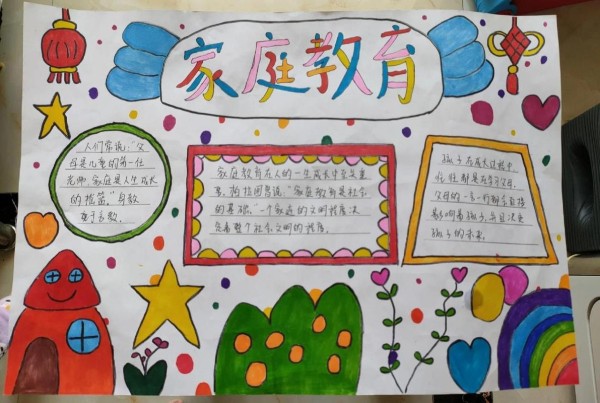 家庭教育
人们常说:"父
母是儿童的第一任
老师,家庭是人生成长
的摇篮。"身教
重于言教。
家庭教育在人的一生成长中至关重
要,柏拉图曾说:"家庭教育是社会
的基础。"一个家庭的文明程度决
定着整个社会文明的程度。
孩子在成长过程中
往往都是在学习父母,
父母的一言一行都会直接
影响着孩子,并且决定
孩子的未来。